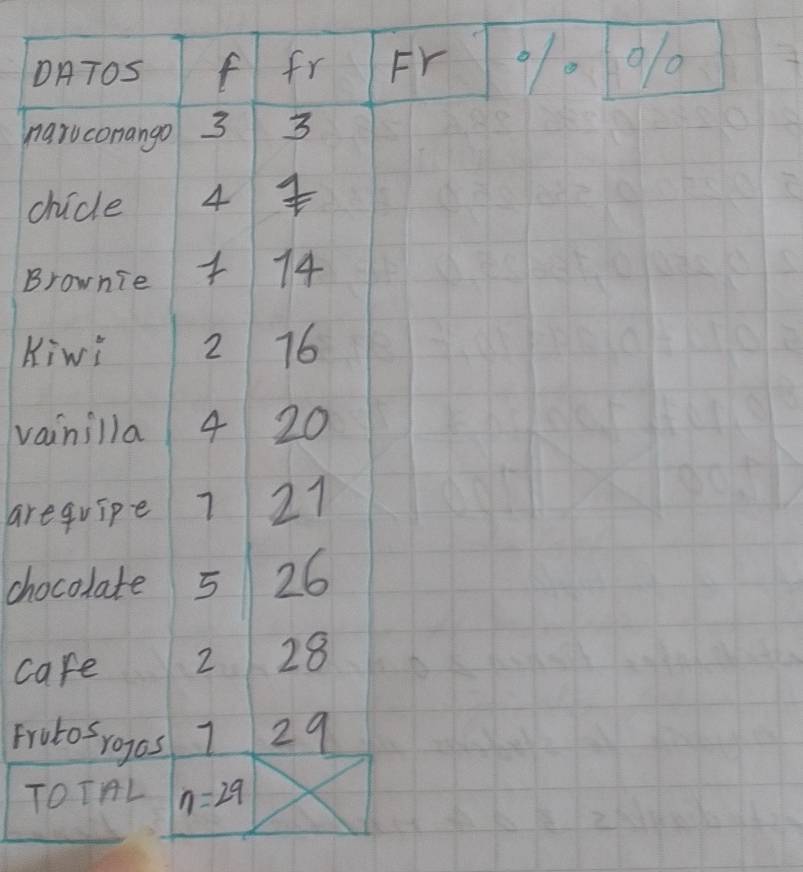 DATOS f fr Fr % %
marucomango 3 3
chicle 4 7
Brownie 7 14
Kiwi 2 16
vainilla 4 20
arequipe 1 21
chocolate 5 26
cafe 2 28
Frutos rojos 1 29
TOTAL n=29